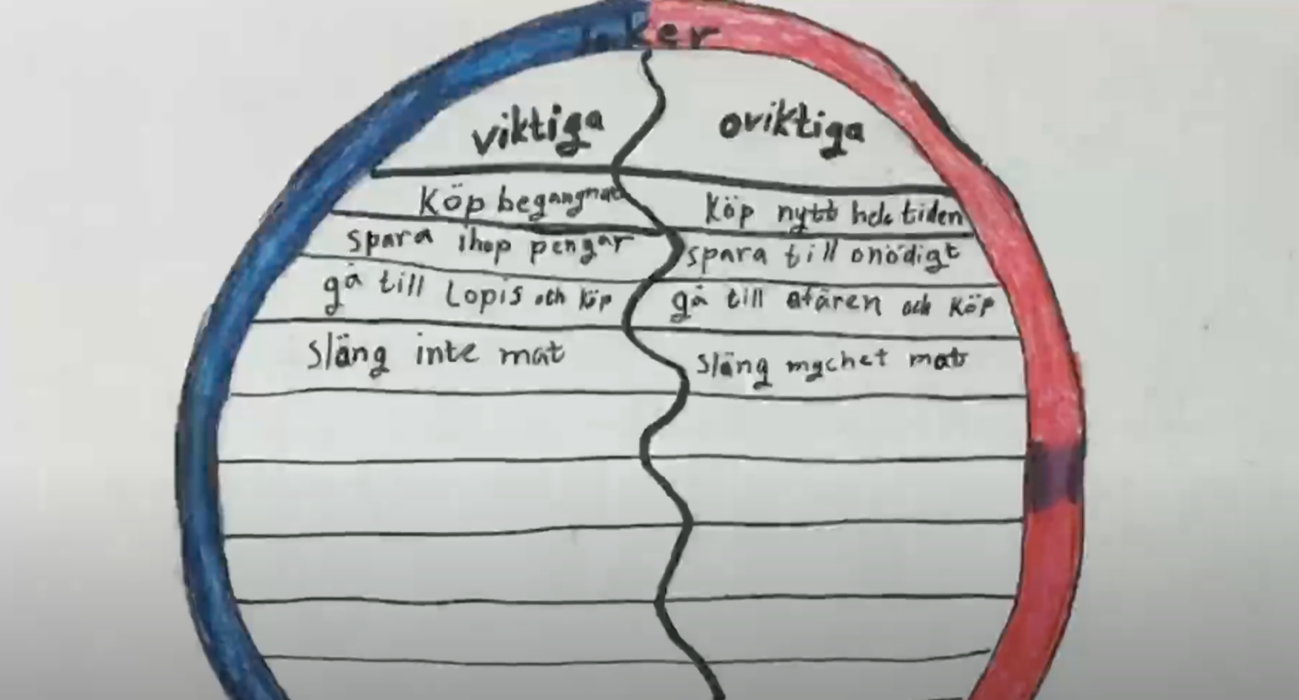 viktiga oviktiga
Köp begagnat Köp nytt hela tiden
spara ihop pengar spara till onödigt
gå till Lopis och köp gå till afären och köp
släng inte mat släng mychet mat